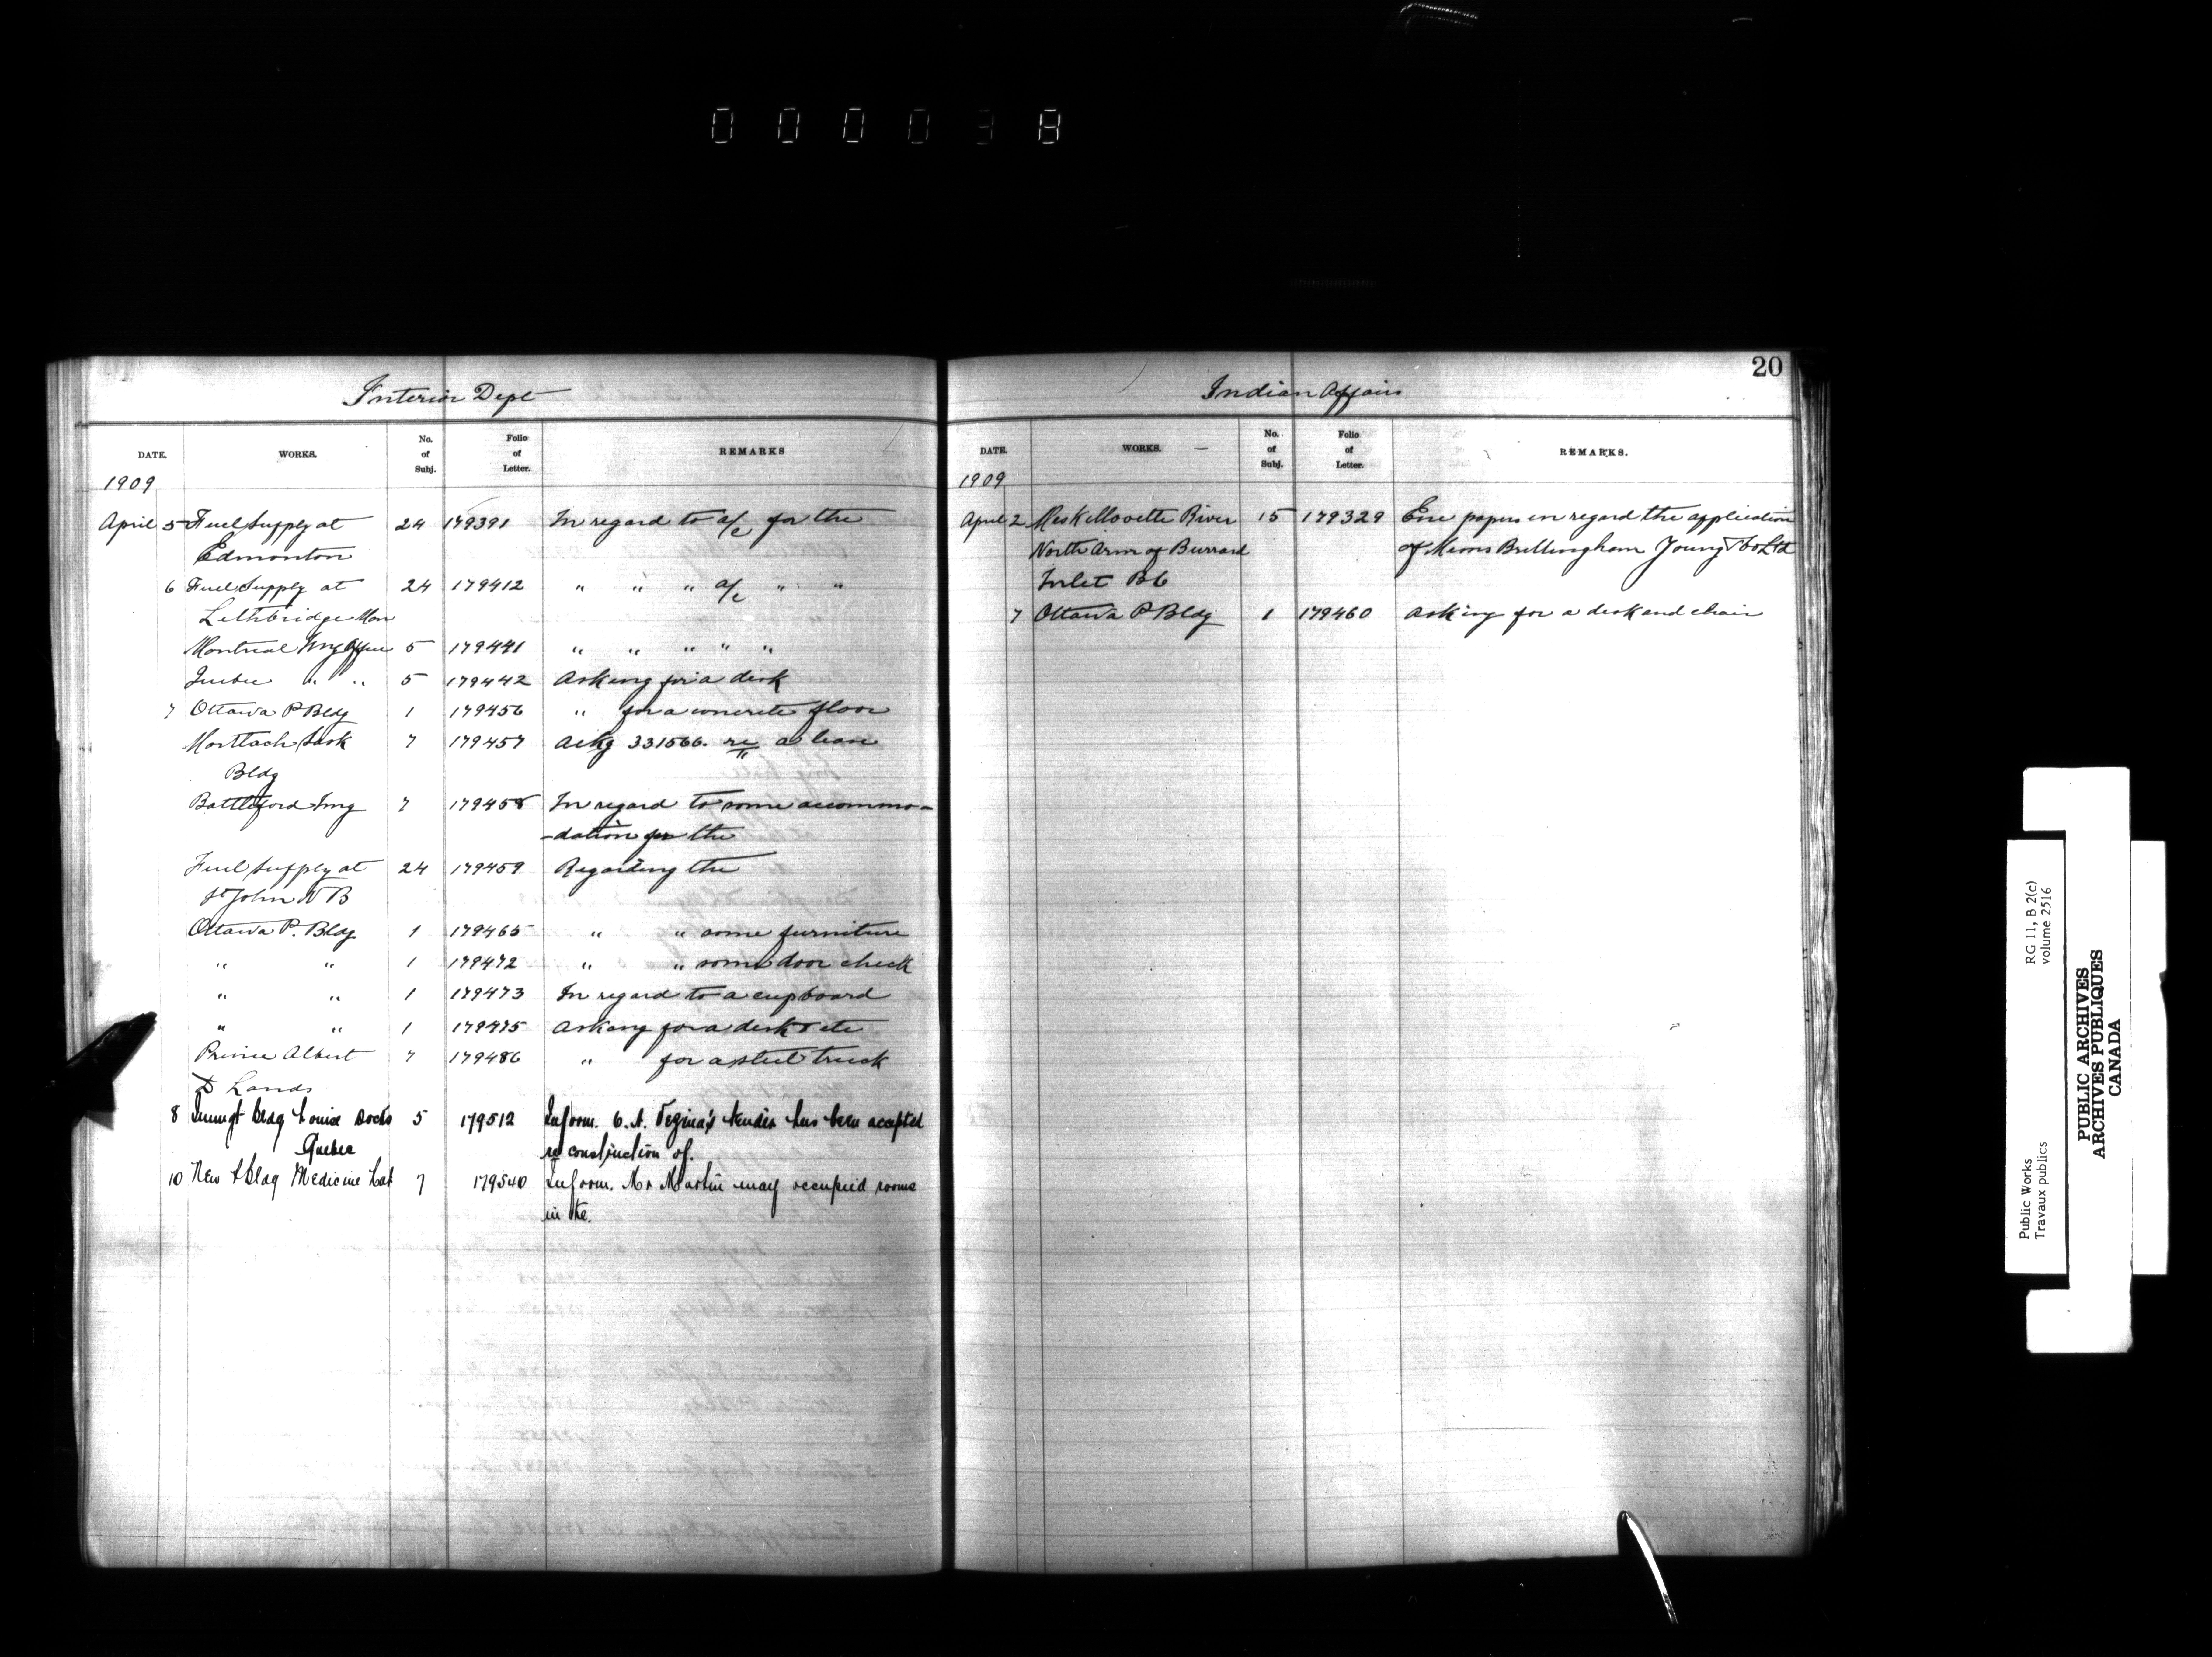 000038
20
Interior Dept
DATE. WORKS. No. of Subj. Folio of Letter. REMARKS
1909
April 5 Fuel Supply at 24 179391 In regard to a/c for the
Edmonton
6 Fuel Supply at 24 179412 " " " a/c " "
Lethbridge Man
Montreal Img Office 5 179441 " " " " "
Quebec " " 5 179442 Asking for a desk
7 Ottawa P Bldg 1 179456 " for a concrete floor
Morttach Sask 7 179457 Ackg 331566. re a lease
Bldg
Battleford Img 7 179458 In regard to some accommo-
-dation for the
Fuel Supply at 24 179459 Regarding the
St John N B
Ottawa P. Bldg 1 179465 " " some furniture
" " 1 179472 " " some door check
" " 1 179473 In regard to a cupboard
" " 1 179475 Asking for a desk & etc
Prince Albert 7 179486 " for a steel truck
D Lands
8 Immgt Bldg Louise Docks 5 179512 Inform. C. A. Vezina's tender has been accepted
Quebec re construction of.
10 New Bldg Medicine Hat 7 179540 Inform. Mr Martin may occupied rooms
in the.
Indian Affairs
DATE. WORKS. No. of Subj. Folio of Letter. REMARKS.
1909
April 2 River 15 179329 Enc papers in regard the application
North Arm of Burrard of Messrs Young & Co Ltd
Inlet B C
7 Ottawa P Bldg 1 179460 Asking for a desk and chair
Public Works RG 11, B 2(c)
Travaux publics volume 2516
PUBLIC ARCHIVES
ARCHIVES PUBLIQUES
CANADA